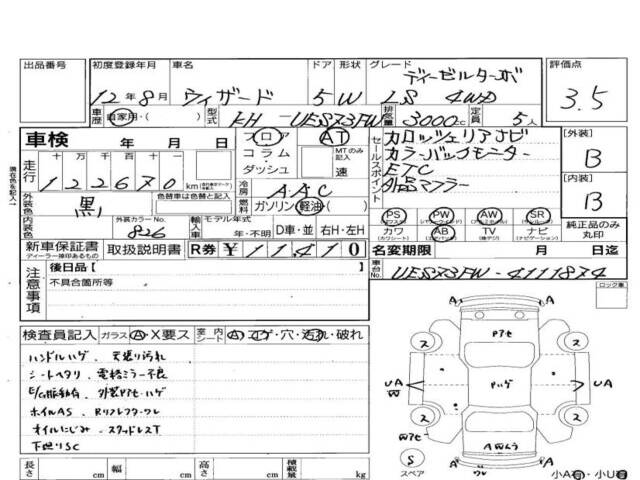 出品番号 初度登録年月 車名 ドア 形状 グレード 評価点
12年8月 ウィザード 5 W ディーゼルターボ LS 4WD 3.5
車歴 自家用・( ) 型式 KH-UES73FW 排気量 3000cc 定員 5人
車検 年 月 日 フロア AT
コラム MTのみ記入
ダッシュ 速
走行 十万 千百十一
122670km
冷房 AAC
外装色 黒 色替車は色替と記入 燃料 ガソリン・軽油・( )
内装色 外装カラーNo. 826 輸入車 モデル年式 年・不明 D車・並 右H・左H
セールスポイント カロッツェリアナビ
カラーバックモニター
ETC
外品マフラー
[外装] B
[内装] B
PS PW AW SR
カワ AB TV ナビ
純正品のみ丸印
新車保証書 ディーラー捺印あるもの 取扱説明書 R券 ¥11410
名変期限 月 日迄
車台No. UES73FW-4111874
注意事項 後日品[ ]
不具合箇所等
検査員記入 ガラス A・X要ス 室内シート A・コゲ・穴・汚れ・破れ
ハンドルハゲ、天張り汚れ
シートヘタリ、電格ミラー不良
E/G振動有、外装Pアセ・ハゲ
ホイルAS、Rリフレクターワレ
オイルにじみ、スタッドレスT
下廻りSC
ロック車
Pアセ
Pハゲ
ス ス
UA W
UA W
ス ス
A A
A ワレ A
S
スペア
小A有・小U有
長さ cm 幅 cm 高さ cm 積載量 kg